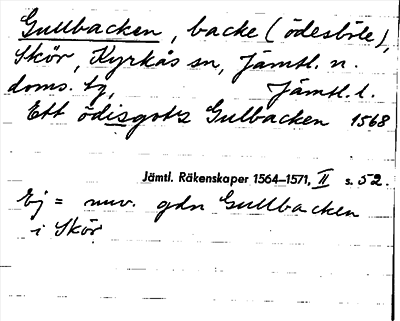 Gullbacken, backe (ödesböle),
Skör, Kyrkås sn, Jämtl. n.
doms. tg, Jämtl. l.
Ett ödisgotz Gulbacken 1568
Jämtl. Räkenskaper 1564–1571, II s. 52.
Ej = nuv. gdn Gullbacken
i Skör